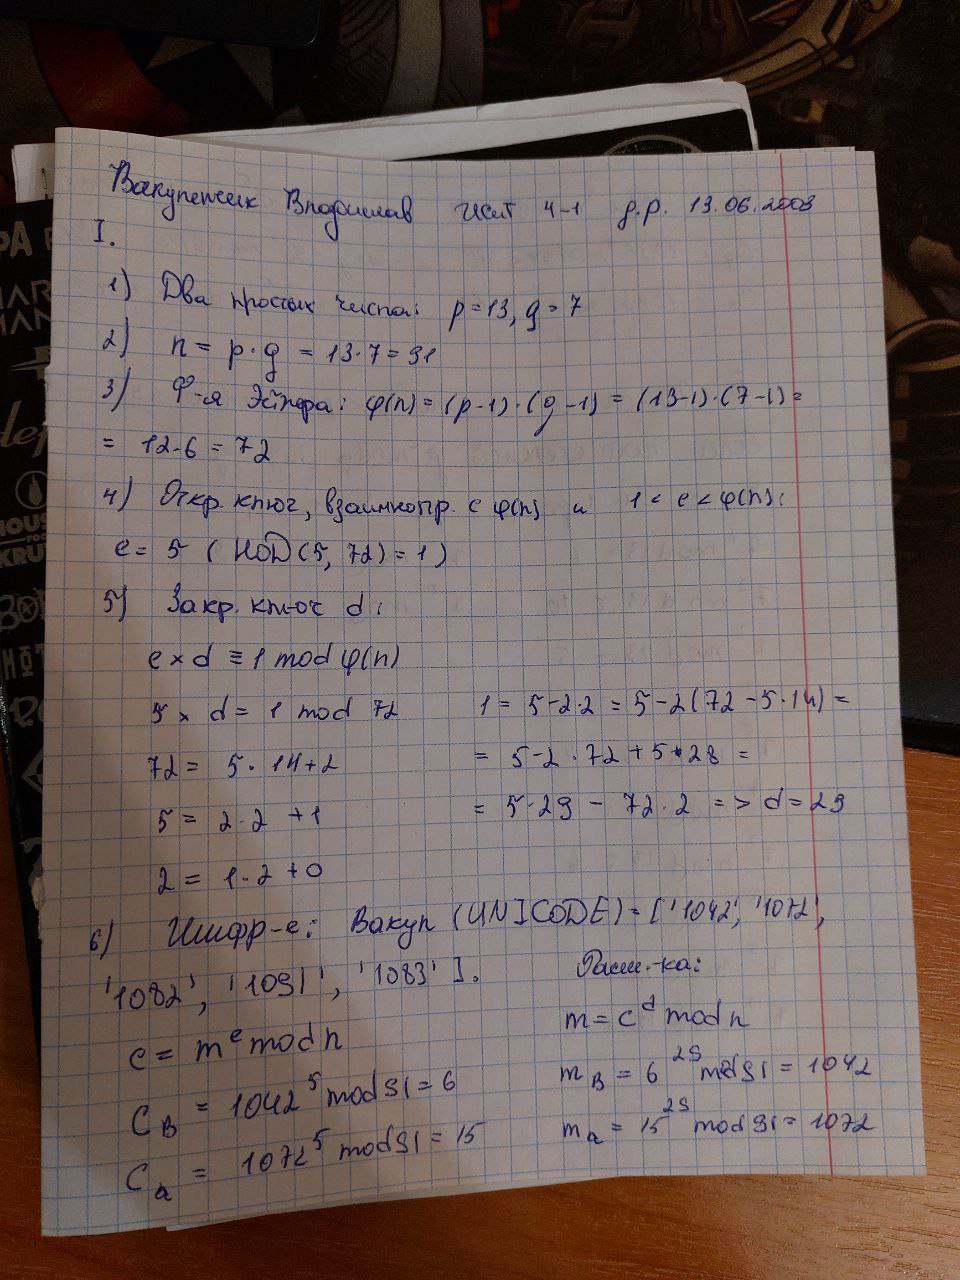 Вакуленчик Владислав ИСиТ 4-1 д.р. 13.06.2003
I.
1) Два простых числа: p = 13, q = 7
2) n = p · q = 13 · 7 = 91
3) Ф-я Эйлера: φ(n) = (p-1) · (q-1) = (13-1) · (7-1) =
= 12 · 6 = 72
4) Откр. ключ, взаимнопр. с φ(n) и 1 < e < φ(n):
e = 5 (НОD(5, 72) = 1)
5) Закр. ключ d:
e × d ≡ 1 mod φ(n)
5 × d = 1 mod 72
72 = 5 · 14 + 2
5 = 2 · 2 + 1
2 = 1 · 2 + 0
1 = 5 - 2 · 2 = 5 - 2(72 - 5 · 14) =
= 5 - 2 · 72 + 5 · 28 =
= 5 · 29 - 72 · 2 => d = 29
6) Шифр-е: Вакул (UNICODE) = ['1042', '1072',
'1082', '1091', '1083'].
c = m^e mod n
C_В = 1042^5 mod 91 = 6
C_а = 1072^5 mod 91 = 15
Расш.-ка:
m = c^d mod n
m_В = 6^29 mod 91 = 1042
m_а = 15^29 mod 91 = 1072